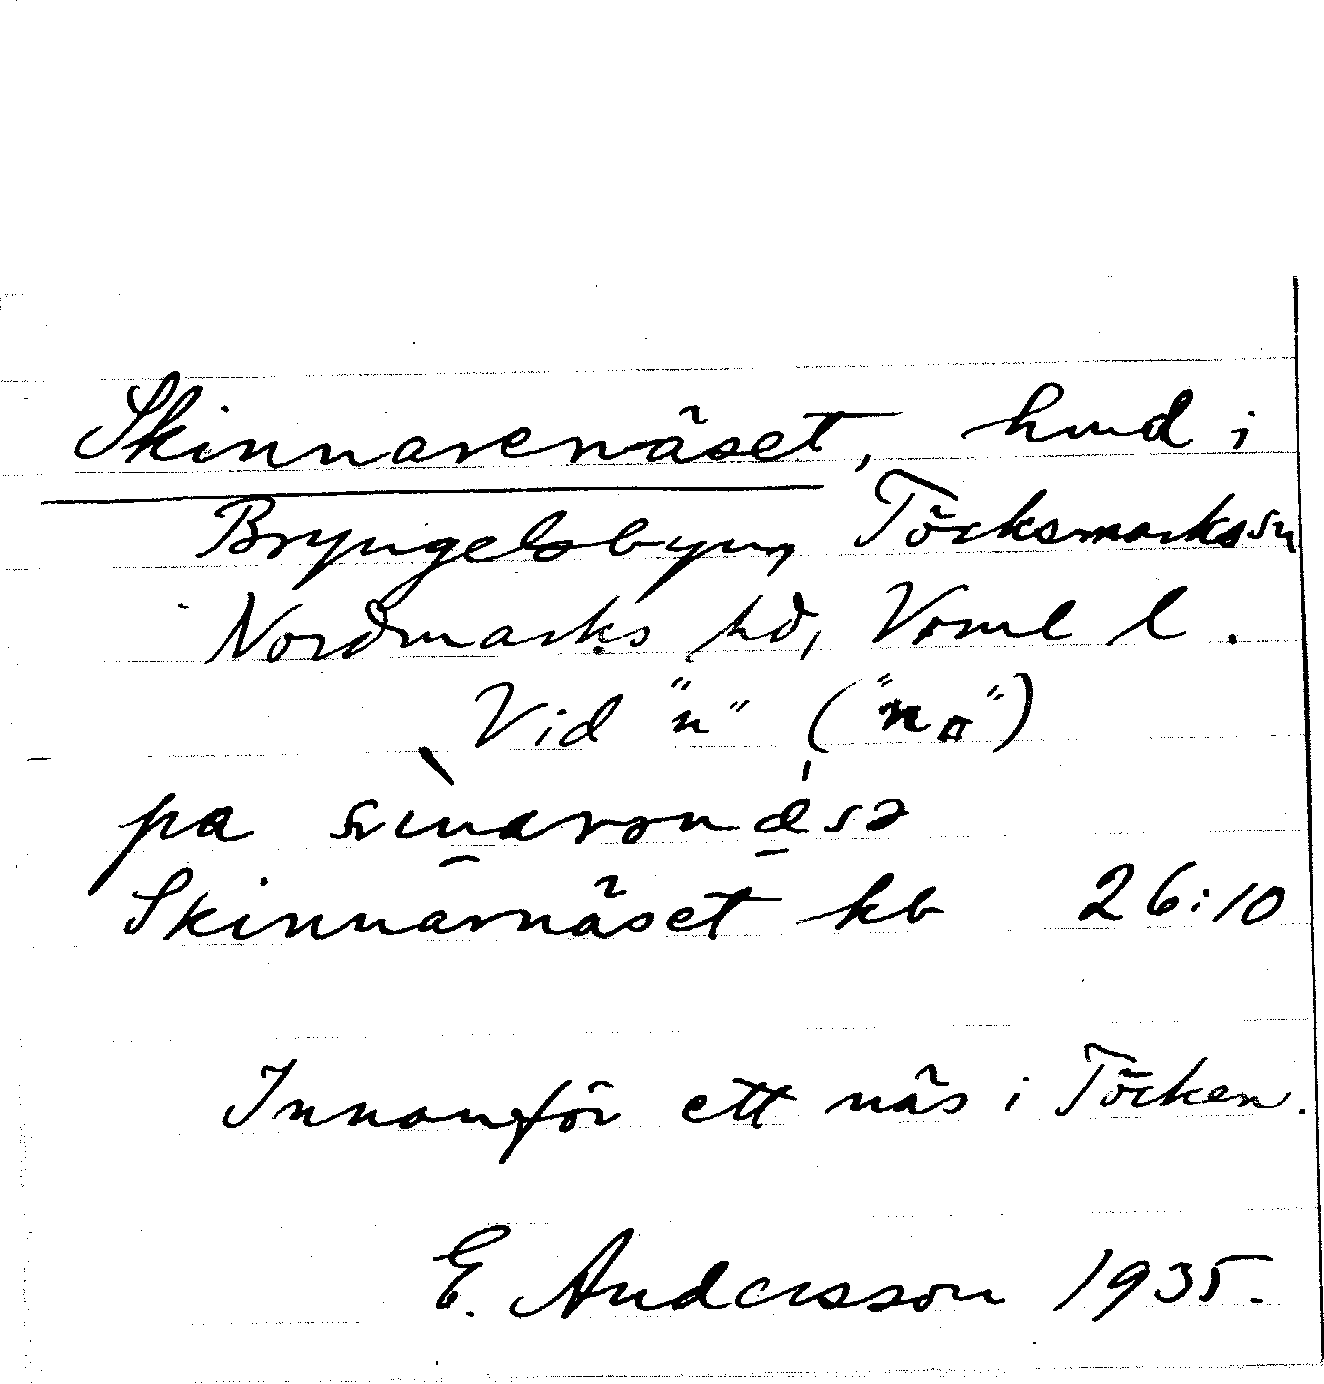 Skinnarenäset, hmd i
Bryngelsbyn, Töcksmarks sn
Nordmarks hd, Vrml l.
Vid "n" ("nä")
pa
Skinnarnäset kb 26:10
Innanför ett näs i Töcken.
E. Andersson 1935.